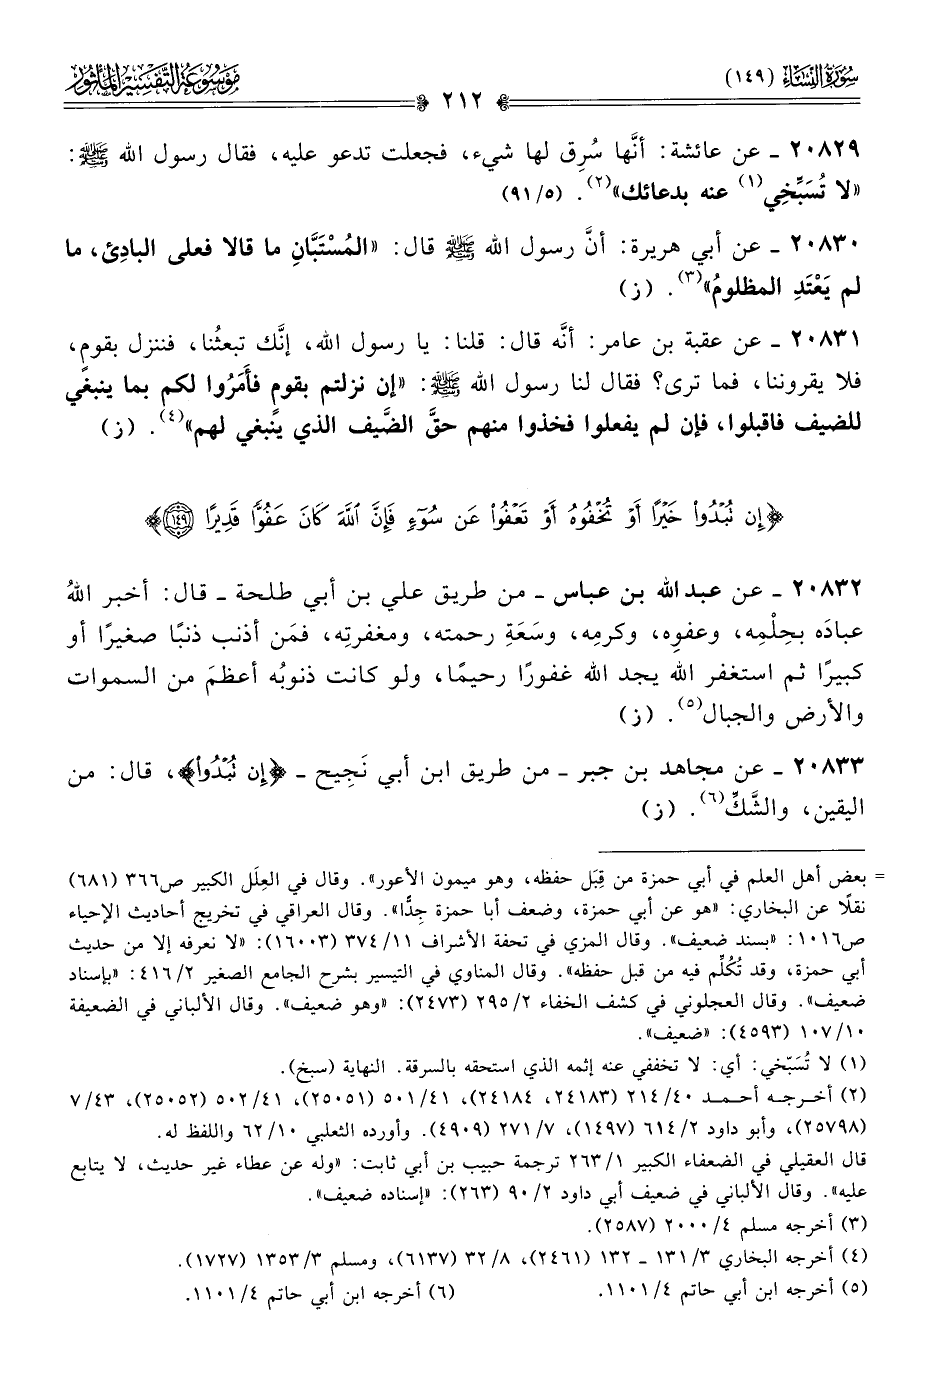 سُورَةُ النِّسَاءِ (١٤٩)
موسوعة التفسير المأثور
٢١٢
٢٠٨٢٩ ـ عن عائشة: أنَّها سُرِق لها شيء، فجعلت تدعو عليه، فقال رسول الله ﷺ:
«لا تُسَبِّخِي(١) عنه بدعائك»(٢). (٩١/٥)
٢٠٨٣٠ ـ عن أبي هريرة: أنَّ رسول الله ﷺ قال: «المُسْتَبَّانِ ما قالا فعلى البادِئ، ما
لم يَعْتَدِ المظلومُ»(٣). (ز)
٢٠٨٣١ ـ عن عقبة بن عامر: أنَّه قال: قلنا: يا رسول الله، إنَّك تبعثُنا، فننزل بقومٍ،
فلا يقروننا، فما ترى؟ فقال لنا رسول الله ﷺ: «إن نزلتم بقومٍ فأَمَرُوا لكم بما ينبغي
للضيف فاقبلوا، فإن لم يفعلوا فخذوا منهم حقَّ الضَّيف الذي ينبغي لهم»(٤). (ز)
﴿إِن تُبْدُوا۟ خَيْرًا أَوْ تُخْفُوهُ أَوْ تَعْفُوا۟ عَن سُوٓءٍ فَإِنَّ ٱللَّهَ كَانَ عَفُوًّا قَدِيرًا ١٤٩﴾
٢٠٨٣٢ ـ عن عبد الله بن عباس ـ من طريق علي بن أبي طلحة ـ قال: أخبر اللهُ
عبادَه بحِلْمِه، وعفوِه، وكرمِه، وسَعَةِ رحمته، ومغفرتِه، فمَن أذنب ذنبًا صغيرًا أو
كبيرًا ثم استغفر الله يجد الله غفورًا رحيمًا، ولو كانت ذنوبُه أعظمَ من السموات
والأرض والجبال(٥). (ز)
٢٠٨٣٣ ـ عن مجاهد بن جبر ـ من طريق ابن أبي نَجِيح ـ ﴿إِن تُبْدُوا۟﴾، قال: من
اليقين، والشَّكِّ(٦). (ز)
= بعض أهل العلم في أبي حمزة من قِبَل حفظه، وهو ميمون الأعور». وقال في العِلَل الكبير ص٣٦٦ (٦٨١)
نقلًا عن البخاري: «هو عن أبي حمزة، وضعف أبا حمزة جِدًّا». وقال العراقي في تخريج أحاديث الإحياء
ص١٠١٦: «بسند ضعيف». وقال المزي في تحفة الأشراف ١١/ ٣٧٤ (١٦٠٠٣): «لا نعرفه إلا من حديث
أبي حمزة، وقد تُكُلِّم فيه من قبل حفظه». وقال المناوي في التيسير بشرح الجامع الصغير ٢/ ٤١٦: «بإسناد
ضعيف». وقال العجلوني في كشف الخفاء ٢/ ٢٩٥ (٢٤٧٣): «وهو ضعيف». وقال الألباني في الضعيفة
١٠/ ١٠٧ (٤٥٩٣): «ضعيف».
(١) لا تُسَبّخي: أي: لا تخففي عنه إثمه الذي استحقه بالسرقة. النهاية (سبخ).
(٢) أخرجه أحمد ٤٠/ ٢١٤ (٢٤١٨٣، ٢٤١٨٤)، ٤١/ ٥٠١ (٢٥٠٥١)، ٤١/ ٥٠٢ (٢٥٠٥٢)، ٤٣/ ٧
(٢٥٧٩٨)، وأبو داود ٢/ ٦١٤ (١٤٩٧)، ٧/ ٢٧١ (٤٩٠٩). وأورده الثعلبي ١٠/ ٦٢ واللفظ له.
قال العقيلي في الضعفاء الكبير ١/ ٢٦٣ ترجمة حبيب بن أبي ثابت: «وله عن عطاء غير حديث، لا يتابع
عليه». وقال الألباني في ضعيف أبي داود ٢/ ٩٠ (٢٦٣): «إسناده ضعيف».
(٣) أخرجه مسلم ٤/ ٢٠٠٠ (٢٥٨٧).
(٤) أخرجه البخاري ٣/ ١٣١ ـ ١٣٢ (٢٤٦١)، ٨/ ٣٢ (٦١٣٧)، ومسلم ٣/ ١٣٥٣ (١٧٢٧).
(٥) أخرجه ابن أبي حاتم ٤/ ١١٠١. (٦) أخرجه ابن أبي حاتم ٤/ ١١٠١.